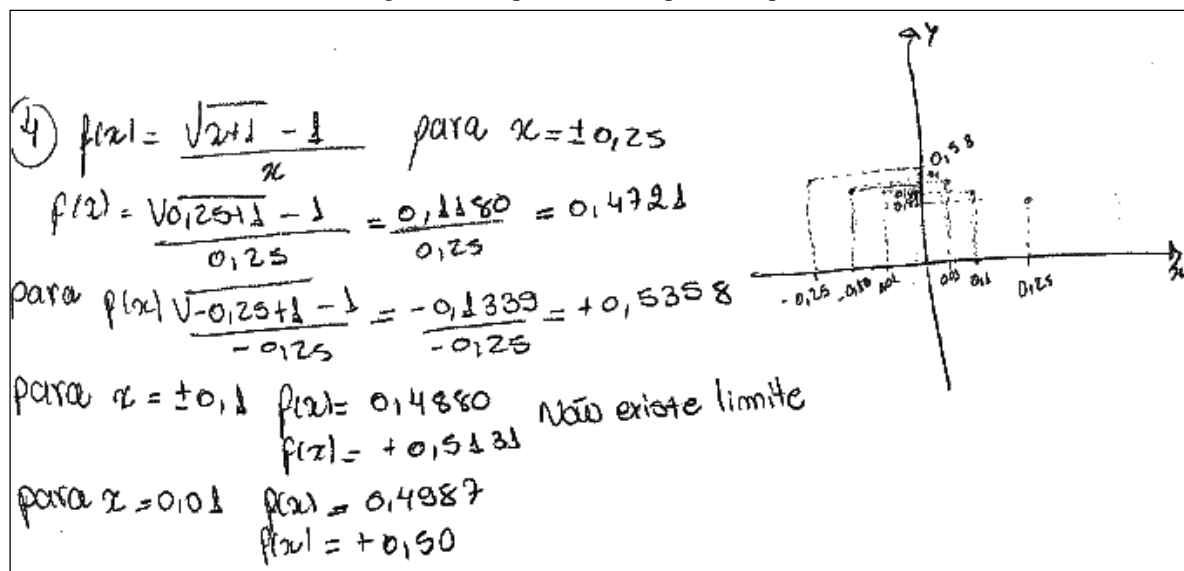 ④ f(x) = (√x+1 - 1)/x para x = ±0,25
f(x) = (√0,25+1 - 1)/0,25 = 0,1180/0,25 = 0,4721
para f(x) (√-0,25+1 - 1)/-0,25 = -0,1339/-0,25 = +0,5358
para x = ±0,1 f(x) = 0,4880 Não existe limite
f(x) = +0,5131
para x = 0,01 f(x) = 0,4987
f(x) = +0,50
y
0,58
-0,25 0,1 0,25
x